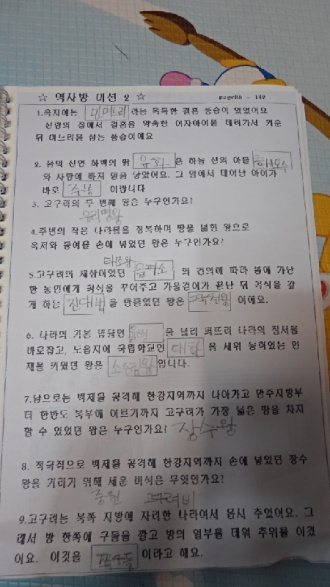 ☆ 역사방 미션 2 ☆
1.옥저에는 민며느리 라는 독특한 결혼 풍습이 있었어요
신랑의 집에서 결혼을 약속한 여자아이를 데려가서 키운
뒤 며느리를 삼는 풍습이에요
2. 물의 신인 하백의 딸 유화 은 하늘 신의 아들 해모수
와 사랑에 빠져 알을 낳았어요. 그 알에서 태어난 아이가
바로 주몽 이랍니다
3. 고구려의 두 번째 왕은 누구인가요?
유리명왕
4.주변의 작은 나라들을 정복하며 땅을 넓힌 왕으로
옥저와 동예를 손에 넣었던 왕은 누구인가요?
태조왕
5.고구려의 재상이었던 을파소 의 건의에 따라 봄에 가난
한 농민에게 곡식을 꾸어주고 가을걷이가 끝난 뒤 곡식을 갚
게 하는 진대법 을 만들었던 왕은 고국천왕 이에요.
6. 나라의 기본 법률인 율령 을 널리 퍼뜨려 나라의 질서를
바로잡고, 도읍지에 국립학교인 태학 을 세워 능력있는 인
재를 키웠던 왕은 소수림왕 입니다.
7.남으로는 백제를 공격해 한강지역까지 나아가고 만주지방부
터 한반도 북부에 이르기까지 고구려가 가장 넓은 땅을 차지
할 수 있었던 왕은 누구인가요? 장수왕
8. 적극적으로 백제를 공격해 한강지역까지 손에 넣었던 장수
왕을 기리기 위해 세운 비석은 무엇인가요?
중원 고려비
9.고구려는 북쪽 지방에 자리한 나라여서 몹시 추웠어요. 그
래서 방 한쪽에 구들을 깔고 방의 일부를 데워 추위를 이겼
어요. 이것을 이라고 해요.